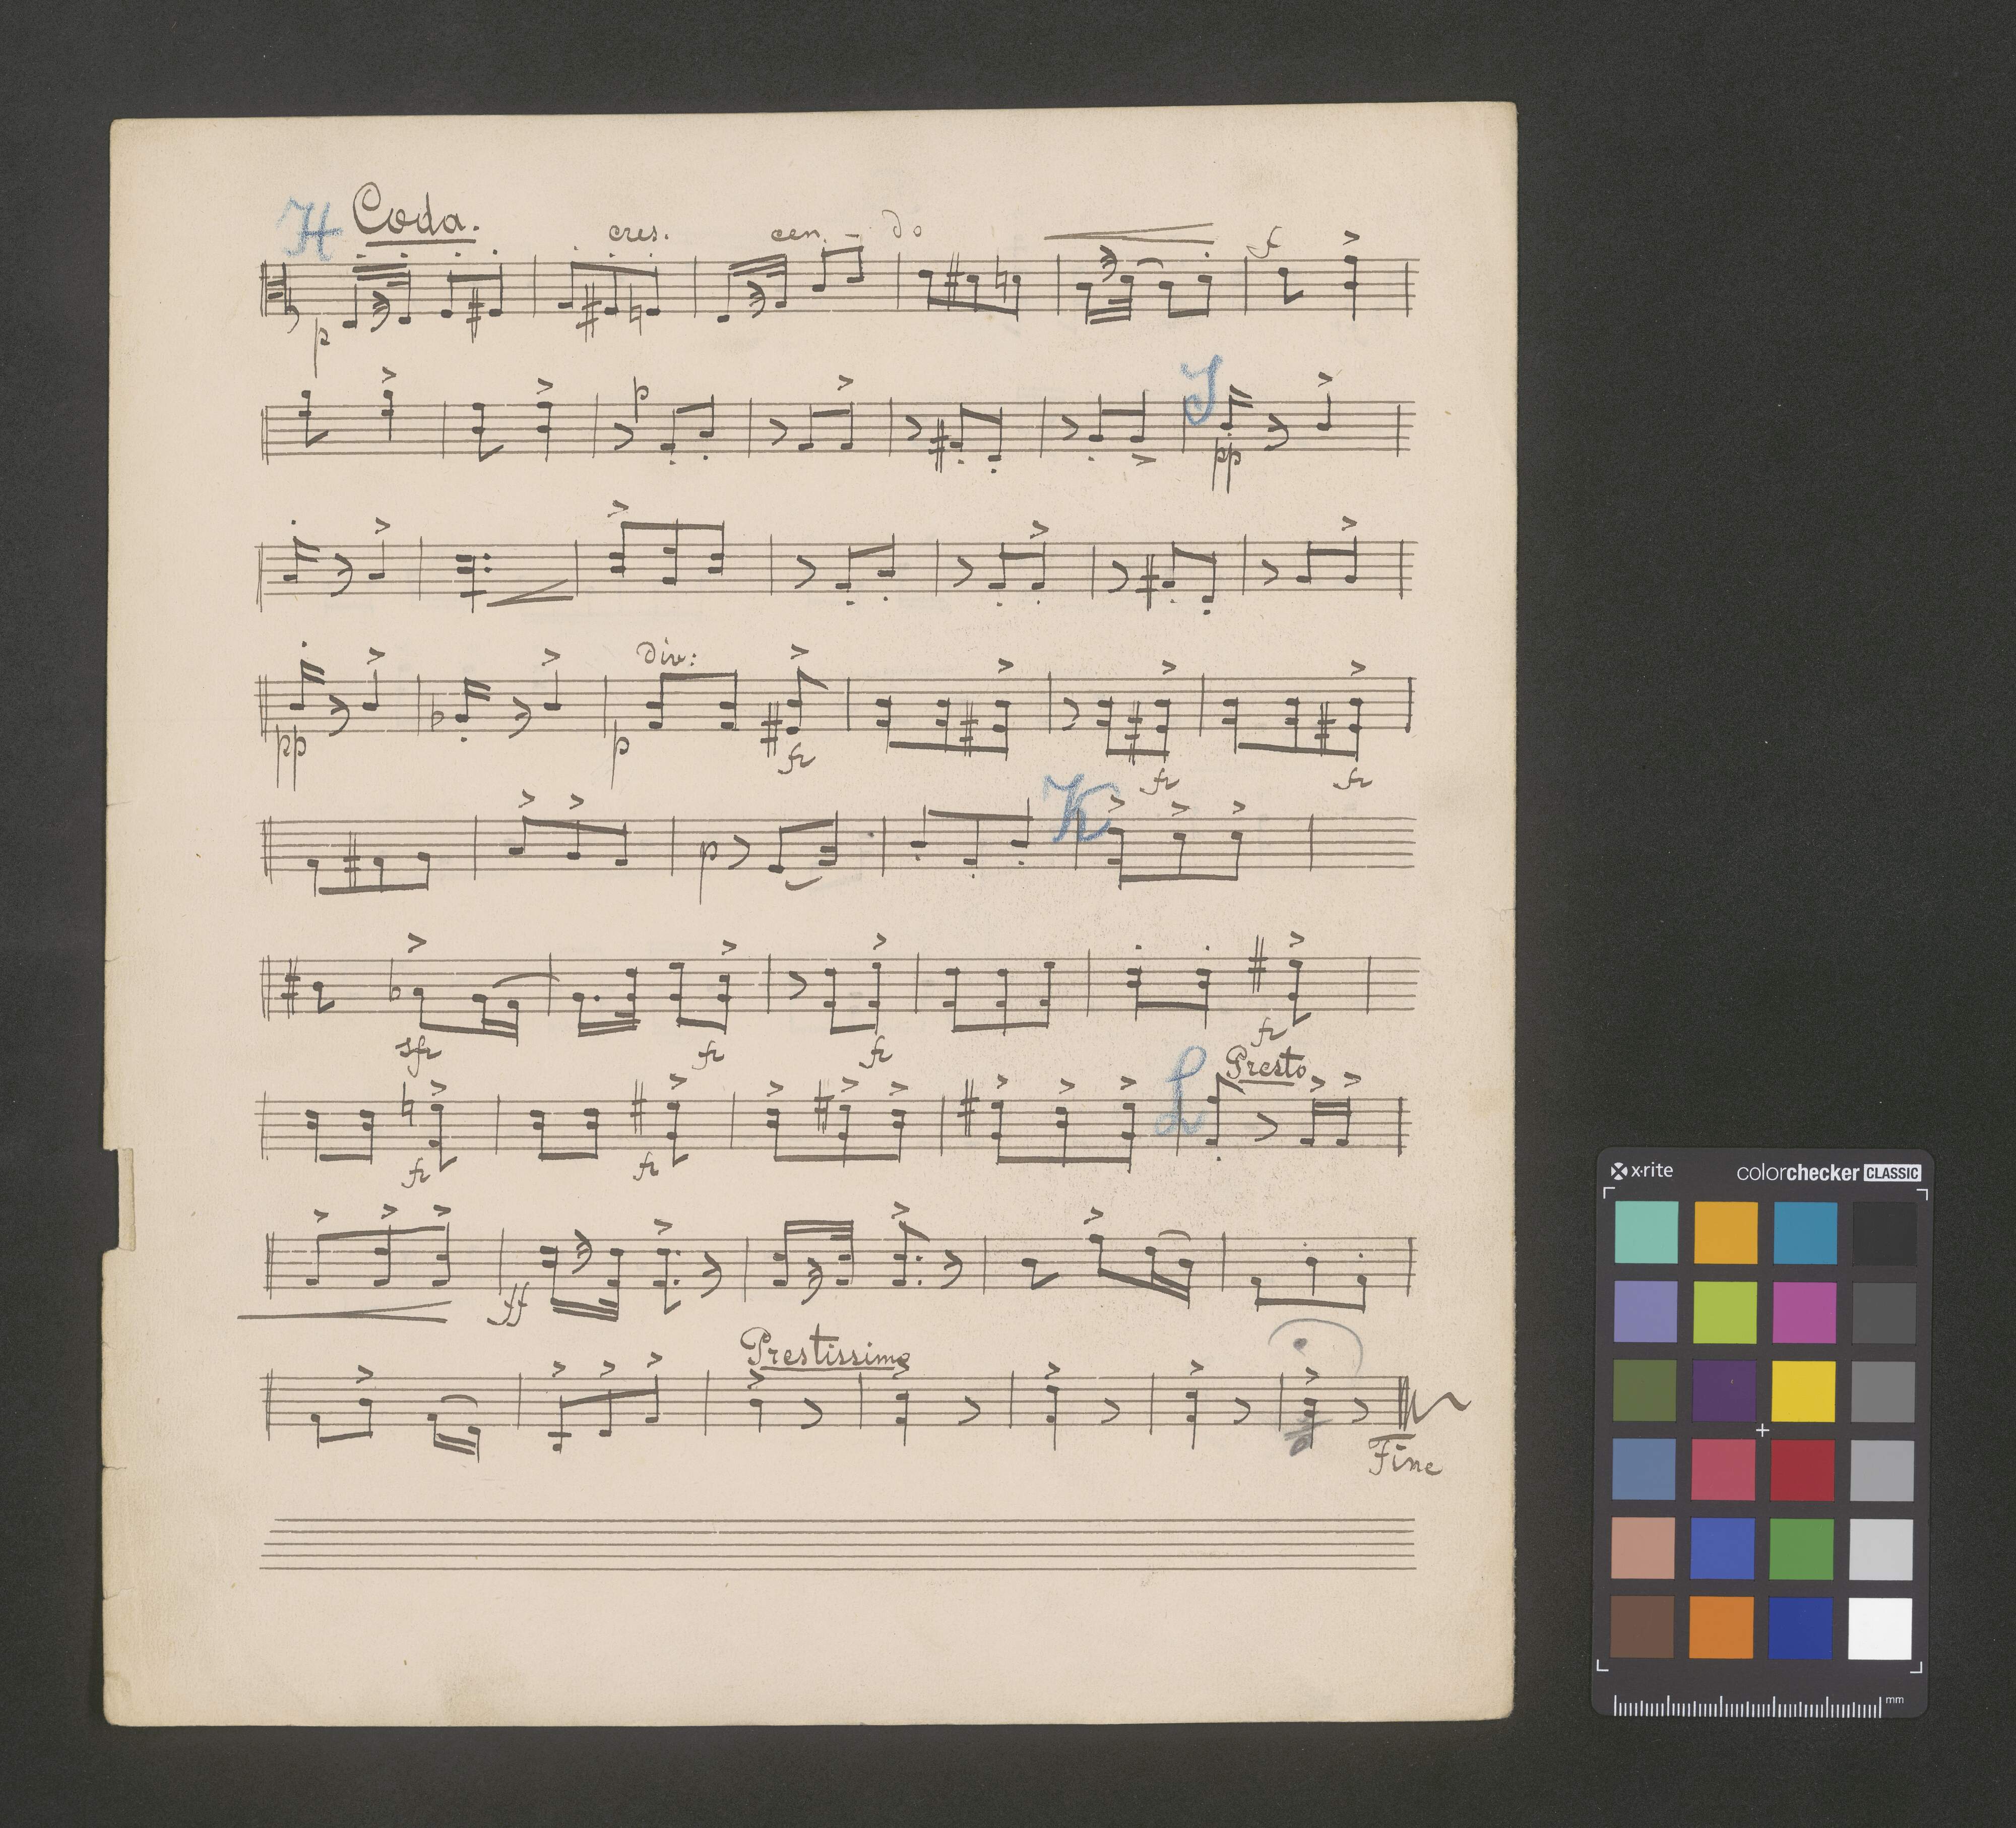 H Coda. cres. cen - do f
p
p
J
pp
div:
pp p fz
fz fz
K
p
sfz fz fz fz
L Presto
fz fz
ff
Prestissimo
Fine
x·rite colorchecker CLASSIC
mm